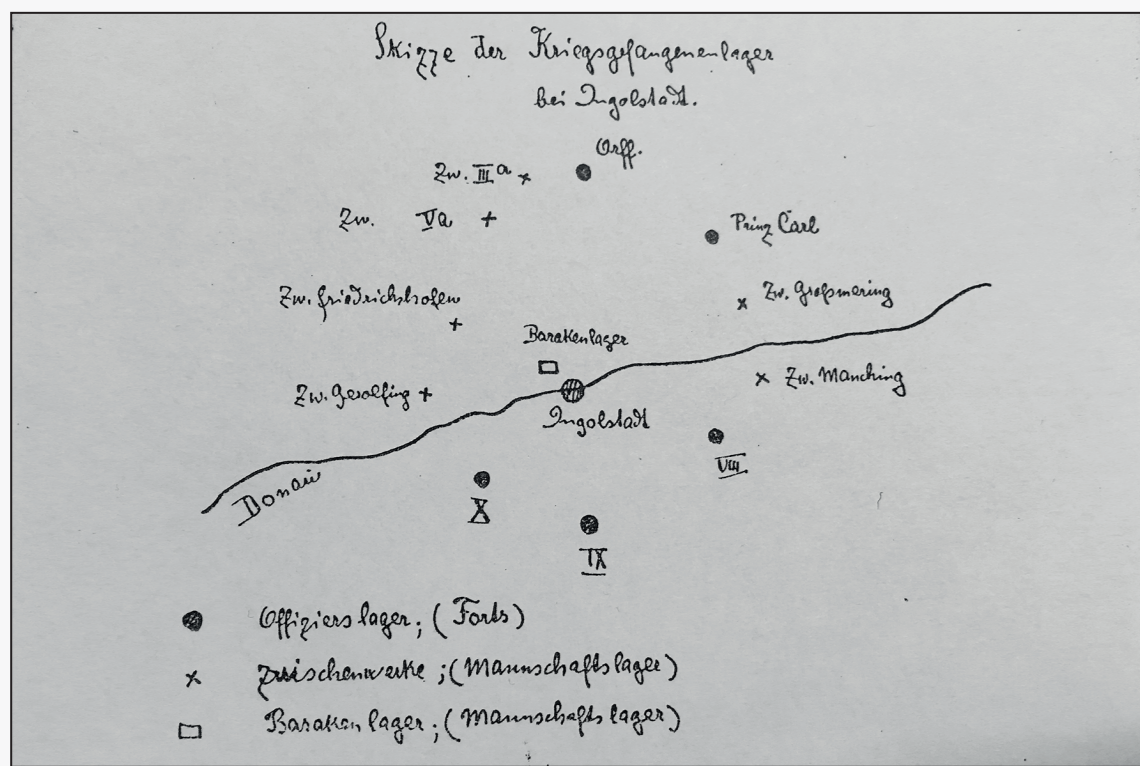 Skizze der Kriegsgefangenenlager
bei Ingolstadt.
Orff.
Zw. III a
Zw. Va
Prinz Carl
Zw. Friedrichshofen
Zw. Großmering
Barakenlager
Zw. Manching
Zw. Gerolfing
Ingolstadt
VIII.
Donau
X
IX
Offizierslager; (Forts)
Zwischenwerke; (Mannschaftslager)
Baraken lager; (Mannschaftslager)